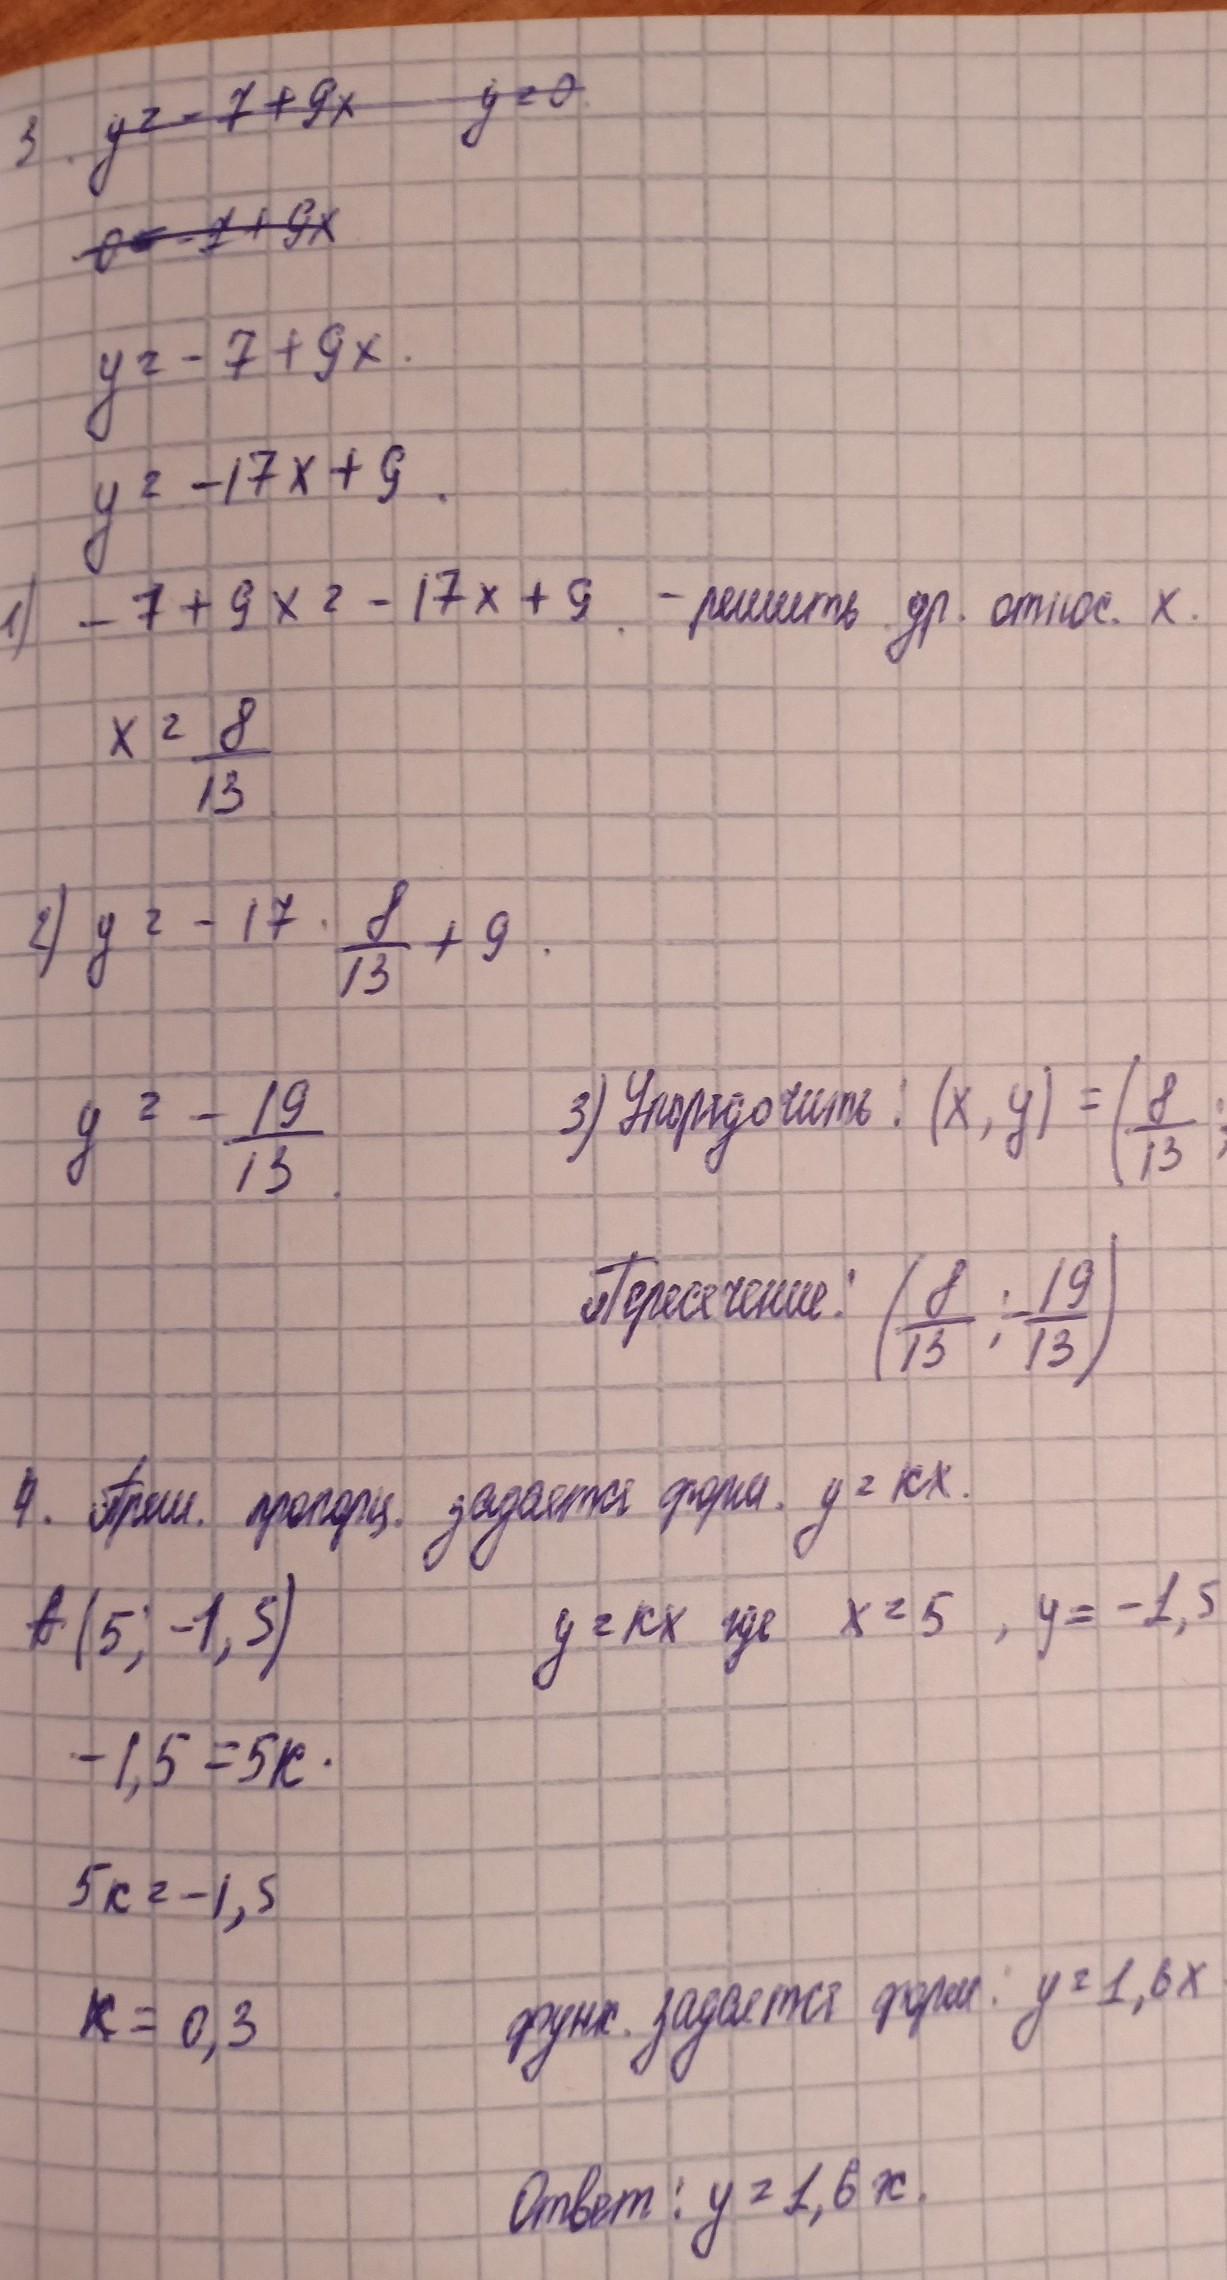 3. y = - 7 + 9x y = 0
0 = - 7 + 9x
y = - 7 + 9x.
y = -17x + 9.
1) - 7 + 9x = - 17x + 9. - решить др. относ. x.
x = 8/13
2) y = - 17 · 8/13 + 9.
y = - 19/13.
3) Упорядочить: (x, y) = (8/13;
Пересечение: (8/13; -19/13)
4. Прям. пропорц. задается форм. y = kx.
в (5; -1,5) y = kx где x = 5 , y = -1,5
-1,5 = 5k.
5k = -1,5
k = 0,3 функ. задается форм: y = 1,6x
Ответ: y = 1,6x.